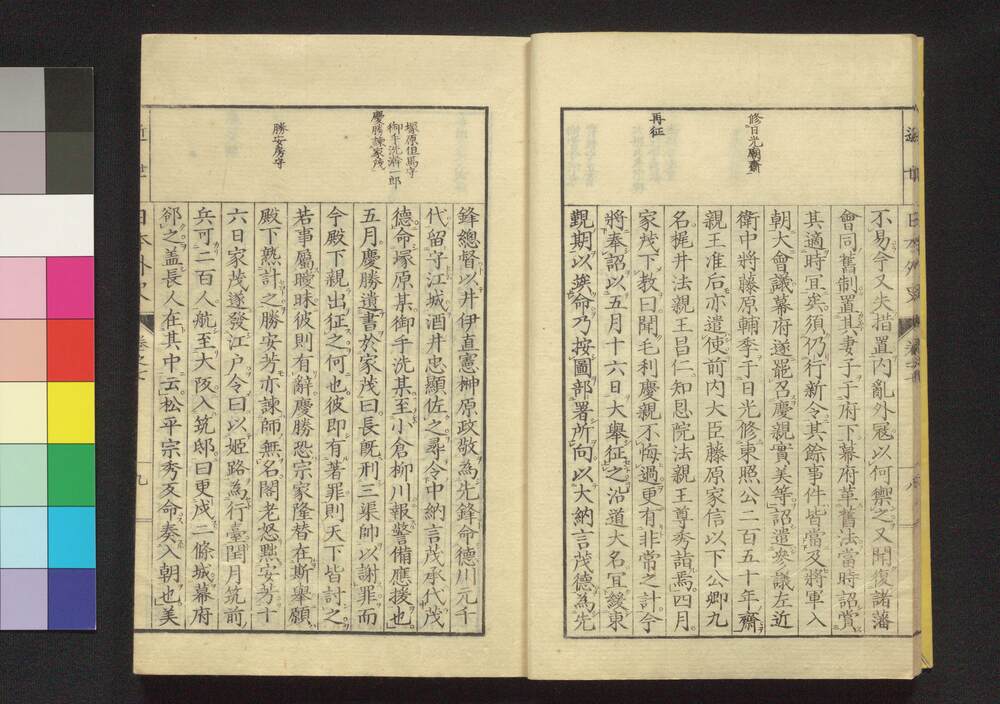 修日光廟齋
再征
不易今又失措置内亂外冦以何禦之又聞復諸藩
會同舊制置其妻子于府下幕府革舊法當時詔賞
其適時冝矣須仍行新令其餘事件皆當及將軍入
朝大會議幕府遂罷召慶親實美等詔遣參議左近
衛中將藤原輔季于日光修東照公二百五十年齋
親王准后亦遣使前内大臣藤原家信以下公卿九
名梶井法親王昌仁知恩院法親王尊秀詣焉四月
家茂下教曰聞毛利慶親不悔過更有非常之計今
將奉詔以五月十六日大舉征之沿道大名冝緩東
覲期以俟命乃按圖部署所向以大納言茂德為先
塚原但馬守
御手洗幹一郎
慶勝諫家茂
勝安房守
鋒總督以井伊直憲榊原政敬為先鋒命德川元千
代留守江城酒井忠顯佐之尋令中納言茂承代茂
德命塚原某御手洗某至小倉柳川報警備應援也
五月慶勝遺書於家茂曰長既刑三渠帥以謝罪而
今殿下親出征之何也彼即有著罪則天下皆討之
若事屬曖昧彼則有辭慶勝恐宗家隆替在斯舉願
殿下熟計之勝安芳亦諫師無名閣老怒黜安芳十
六日家茂遂發江户令曰以姫路為行臺閏月筑前
兵可二百人航至大阪入筑邸曰更戍二條城幕府
郤之盖長人在其中云松平宗秀反命奏入朝也美
日本外史
卷之
九